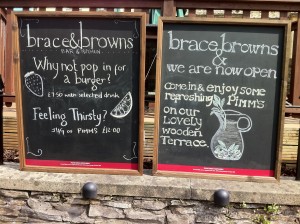 brace&browns
BAR & 
Why not pop in for
a burger?
£7.50 with selected drink
Feeling Thirsty?
Jug of PIMM'S £12.00
brace browns
&
we are now open
COME IN & enjoy some
refreshing PIMM'S
on our
Lovely
wooden
Terrace.